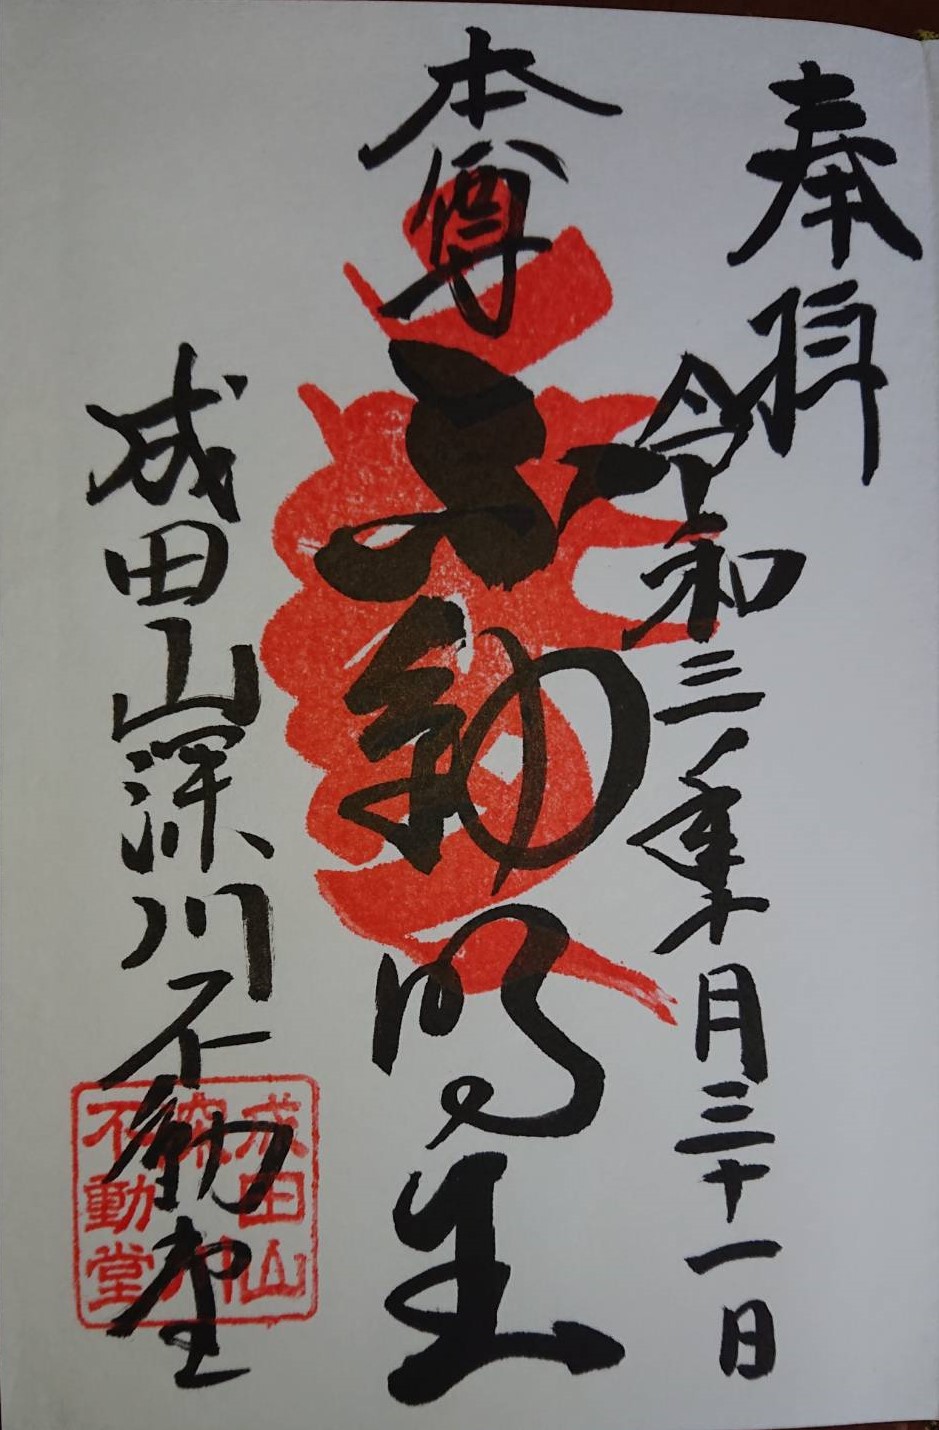 奉拝
令和三年十月三十一日
本尊
不動明王
成田山深川不動堂
成田山
深川
不動堂